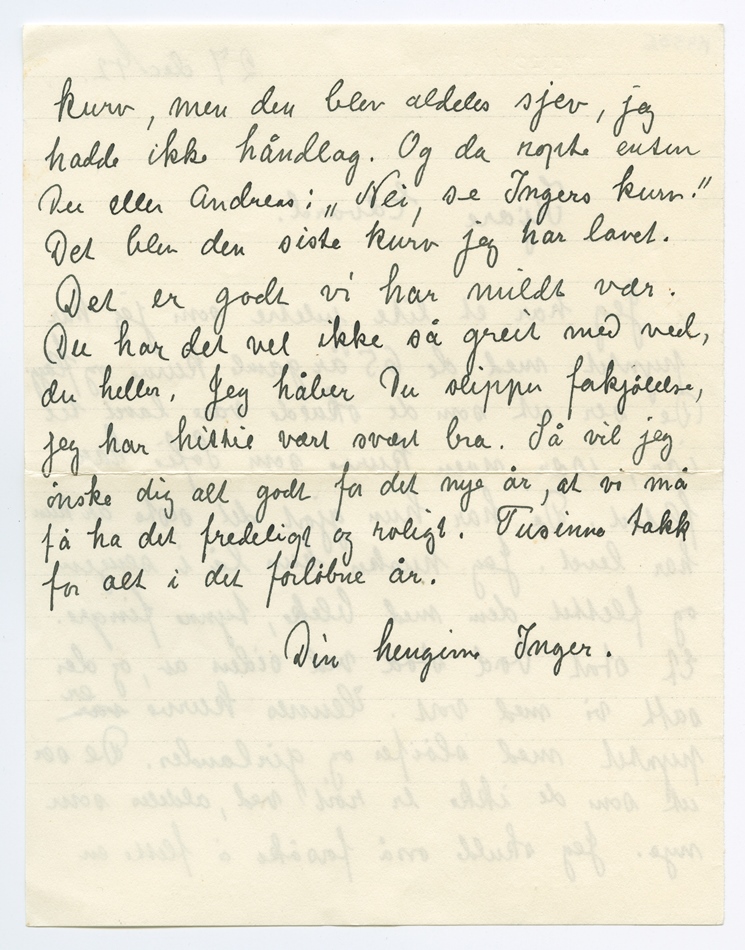 kurv, men den blev aldeles sjev, jeg
hadde ikke håndlag. Og da ropte enten
Du eller Andreas: „Nei, se Ingers kurv!"
Det blev den siste kurv jeg har lavet.
Det er godt vi har mildt vær.
Du har det vel ikke så greit med ved,
du heller. Jeg håber Du slipper forkjølelse,
jeg har hittil vært svært bra. Så vil jeg
ønske dig alt godt for det nye år, at vi må
få ha det fredeligt og roligt. Tusinne takk
for alt i det forløbne år.
Din hengivne Inger.